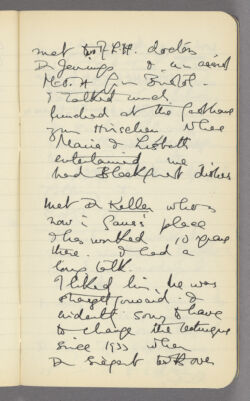 met R.P.H. doctor
Dr Jennings & an
Med. from Bristol.
I talked and
lunched at the Gasthaus
zum Hirschen where
Marie & Lisbeth
entertained me
had Black forest dishes
met Dr Keller who is
now in place
& has worked 10 years
there. I had a
long talk
I liked him, he was
straightforward &
evidently sorry to have
to change the technique
since 1933 when
Dr took over